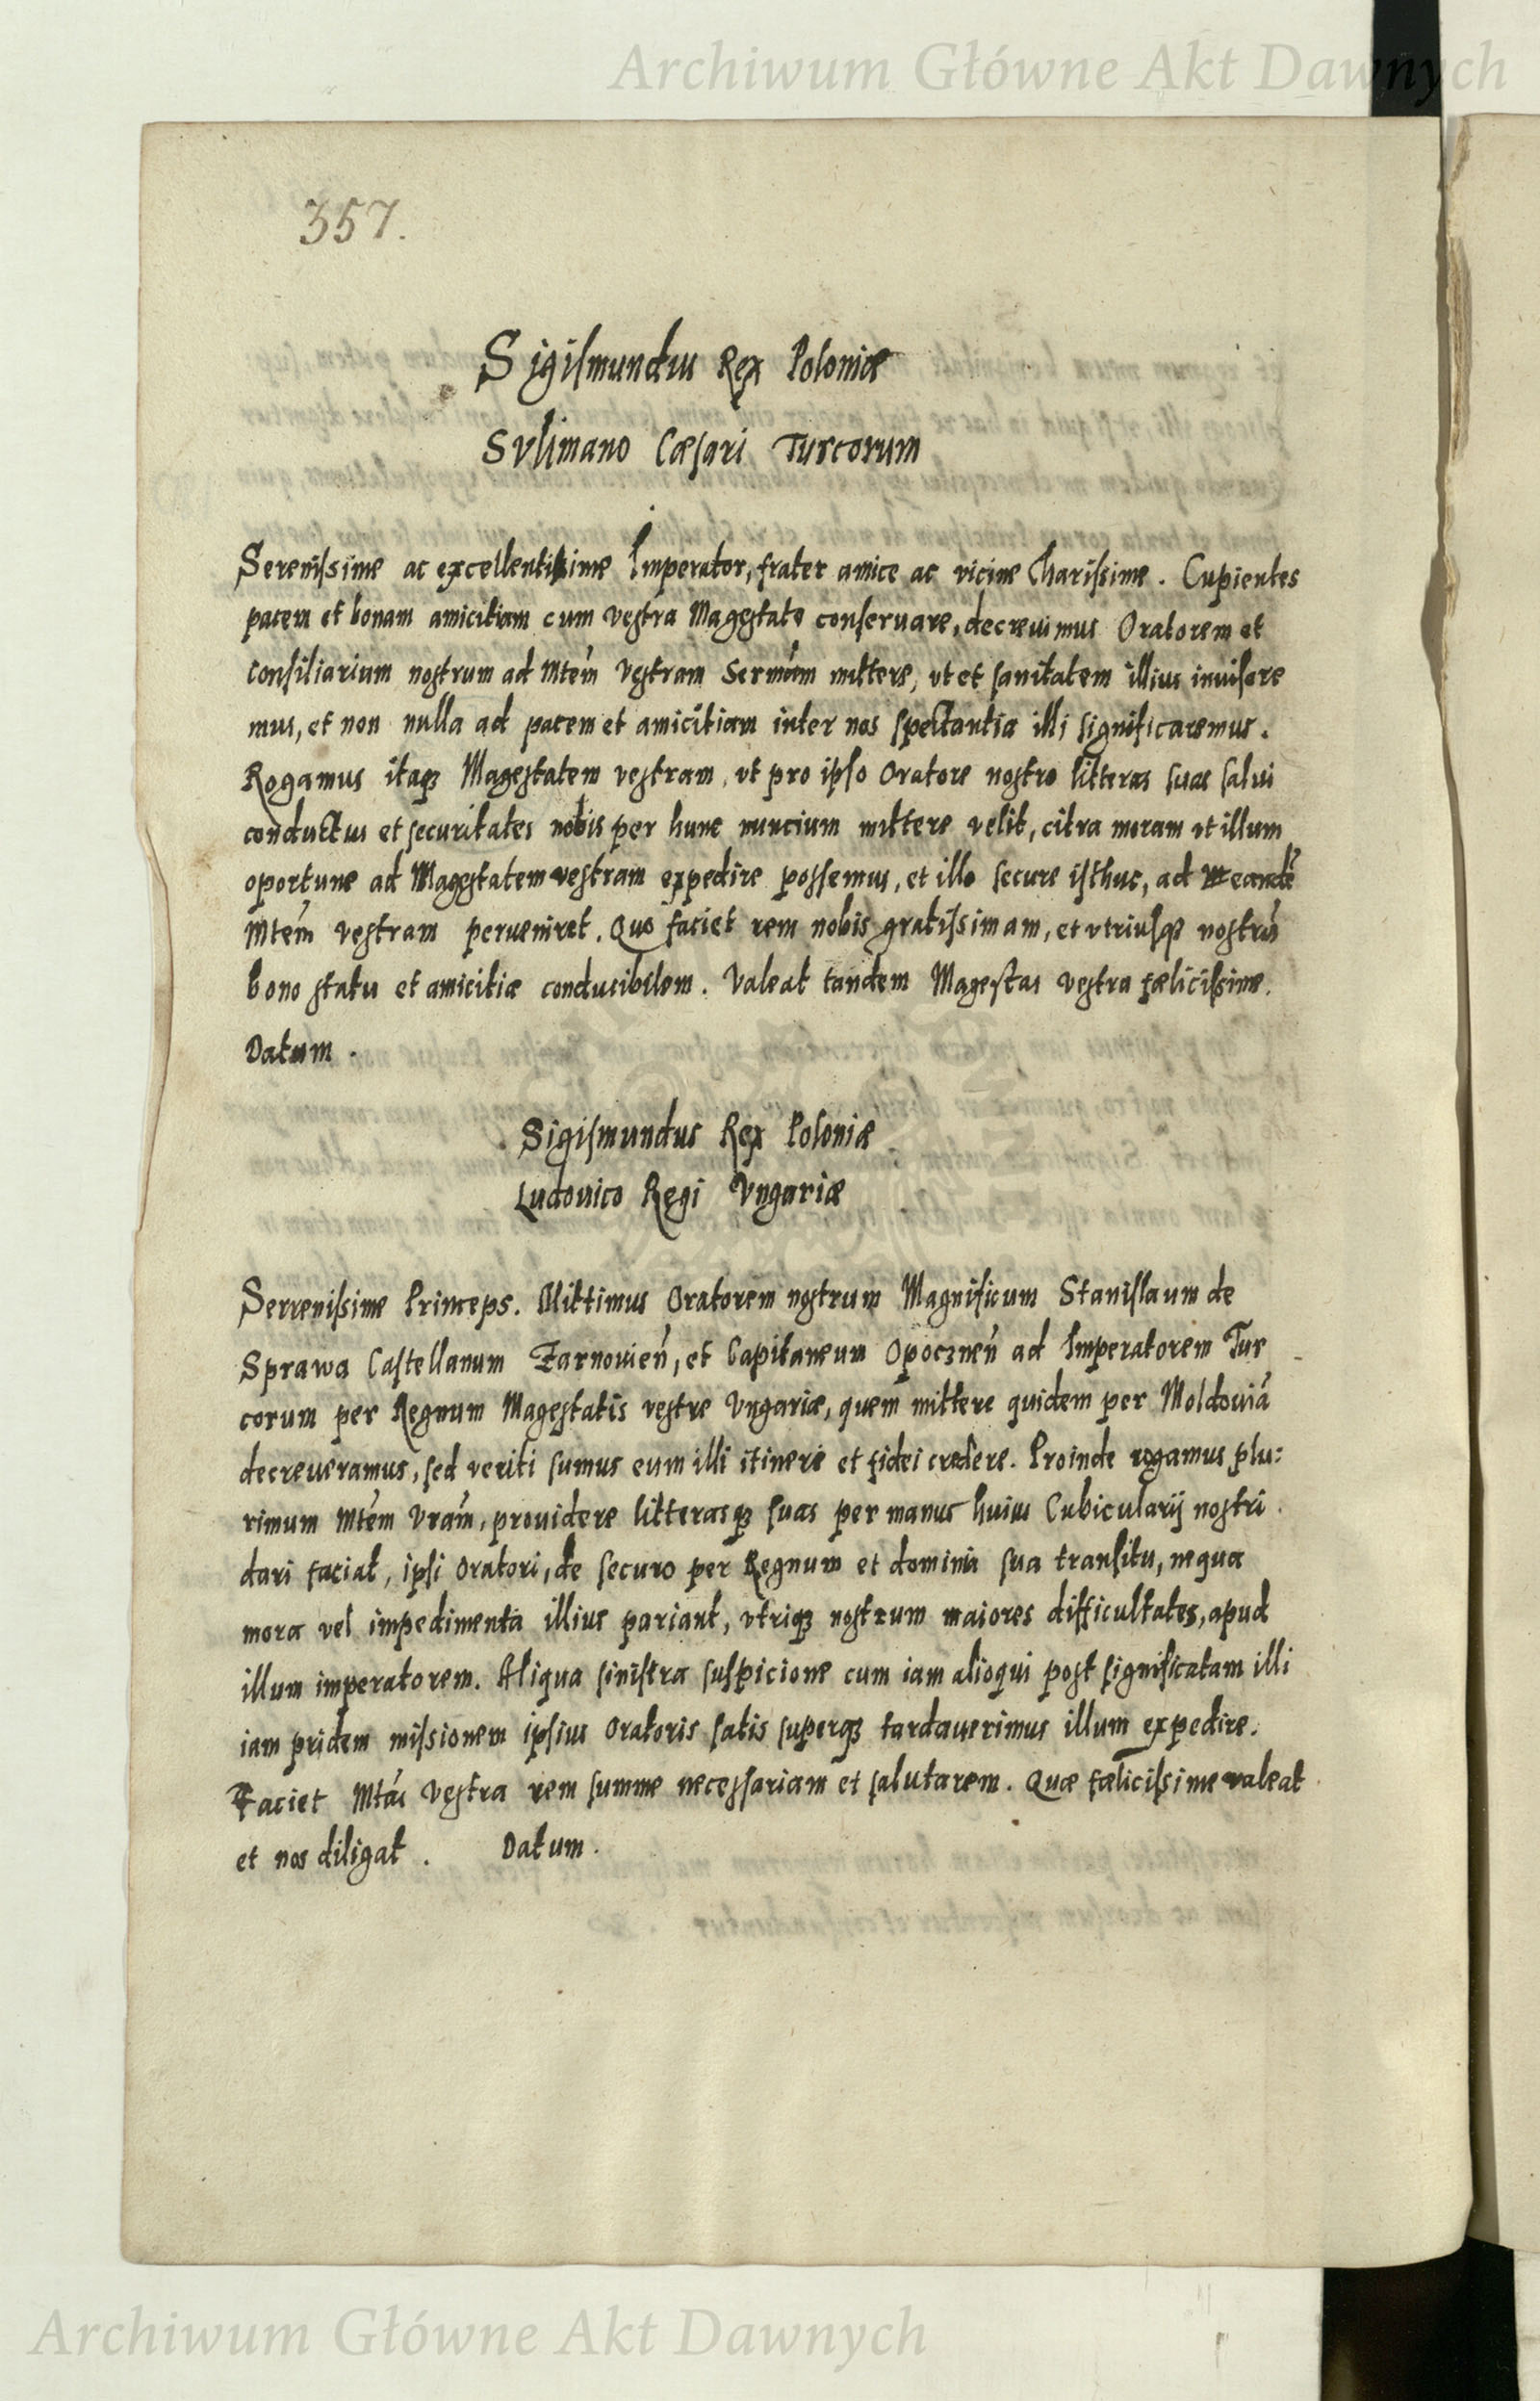 Archiwum Główne Akt Dawnych
357.
Sigismundus Rex Poloniæ
Sulimano Cæsari Turcorum
Serenissime ac excellentissime Imperator, frater amice ac vicine Charissime. Cupientes
pacem et bonam amicitiam cum vestra Magestate conservare, decrevimus Oratorem et
Consiliarium nostrum ad Mtem Vestram Sermam mittere, ut et sanitatem illius invisere
mus, et non nulla ad pacem et amicitiam inter nos spectantia illi significaremus.
Rogamus itaqz Magestatem vestram, ut pro ipso Oratore nostro litteras suas salvi
conductus et securitates nobis per hunc nuncium mittere velit, citra moram ut illum
oportune ad Magestatem vestram expedire possemus, et ille secure isthuc, ad eandē
Mtem vestram perveniret. Quo faciet rem nobis gratissimam, et utriusqz nostrū
bono statu et amicitiæ conducibilem. Valeat tandem Magestas vestra fælicissime.
Datum.
Sigismundus Rex Poloniæ
Ludovico Regi Ungariæ
Serrenissime Princeps. Mittimus Oratorem nostrum Magnificum Stanislaum de
Sprawa Castellanum Zarnovień, et Capitaneum Opoczneń ad Imperatorem Tur
corum per Regnum Magestatis vestre Ungariæ, quem mittere quidem per Moldoviā
decreveramus, sed veriti sumus eum illi itineri et fidei credere. Proinde rogamus plu:
rimum Mtem Vram, providere litterasqz suas per manus huius Cubicularij nostri
dari faciat, ipsi Oratori, de securo per Regnum et dominia sua transitu, nequa
mora vel impedimenta illius pariant, utriqz nostrum maiores difficultates, apud
illum imperatorem. Aliqua sinistra suspicione cum iam alioqui post significatam illi
iam pridem missionem ipsius Oratoris satis superqz tardaverimus illum expedire.
Faciet Mtas Vestra rem summe necessariam et salutarem. Quæ fælicissime valeat
et nos diligat. Datum.
Archiwum Główne Akt Dawnych